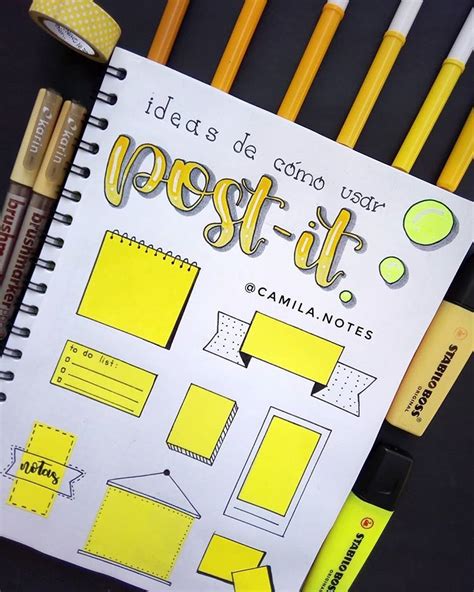 ideas de cómo usar
post-it
@CAMILA.NOTES
to do list:
notas
karin
karin
brushmarker
STABILO BOSS
ORIGINAL
STABILO BOSS
ORIGINAL